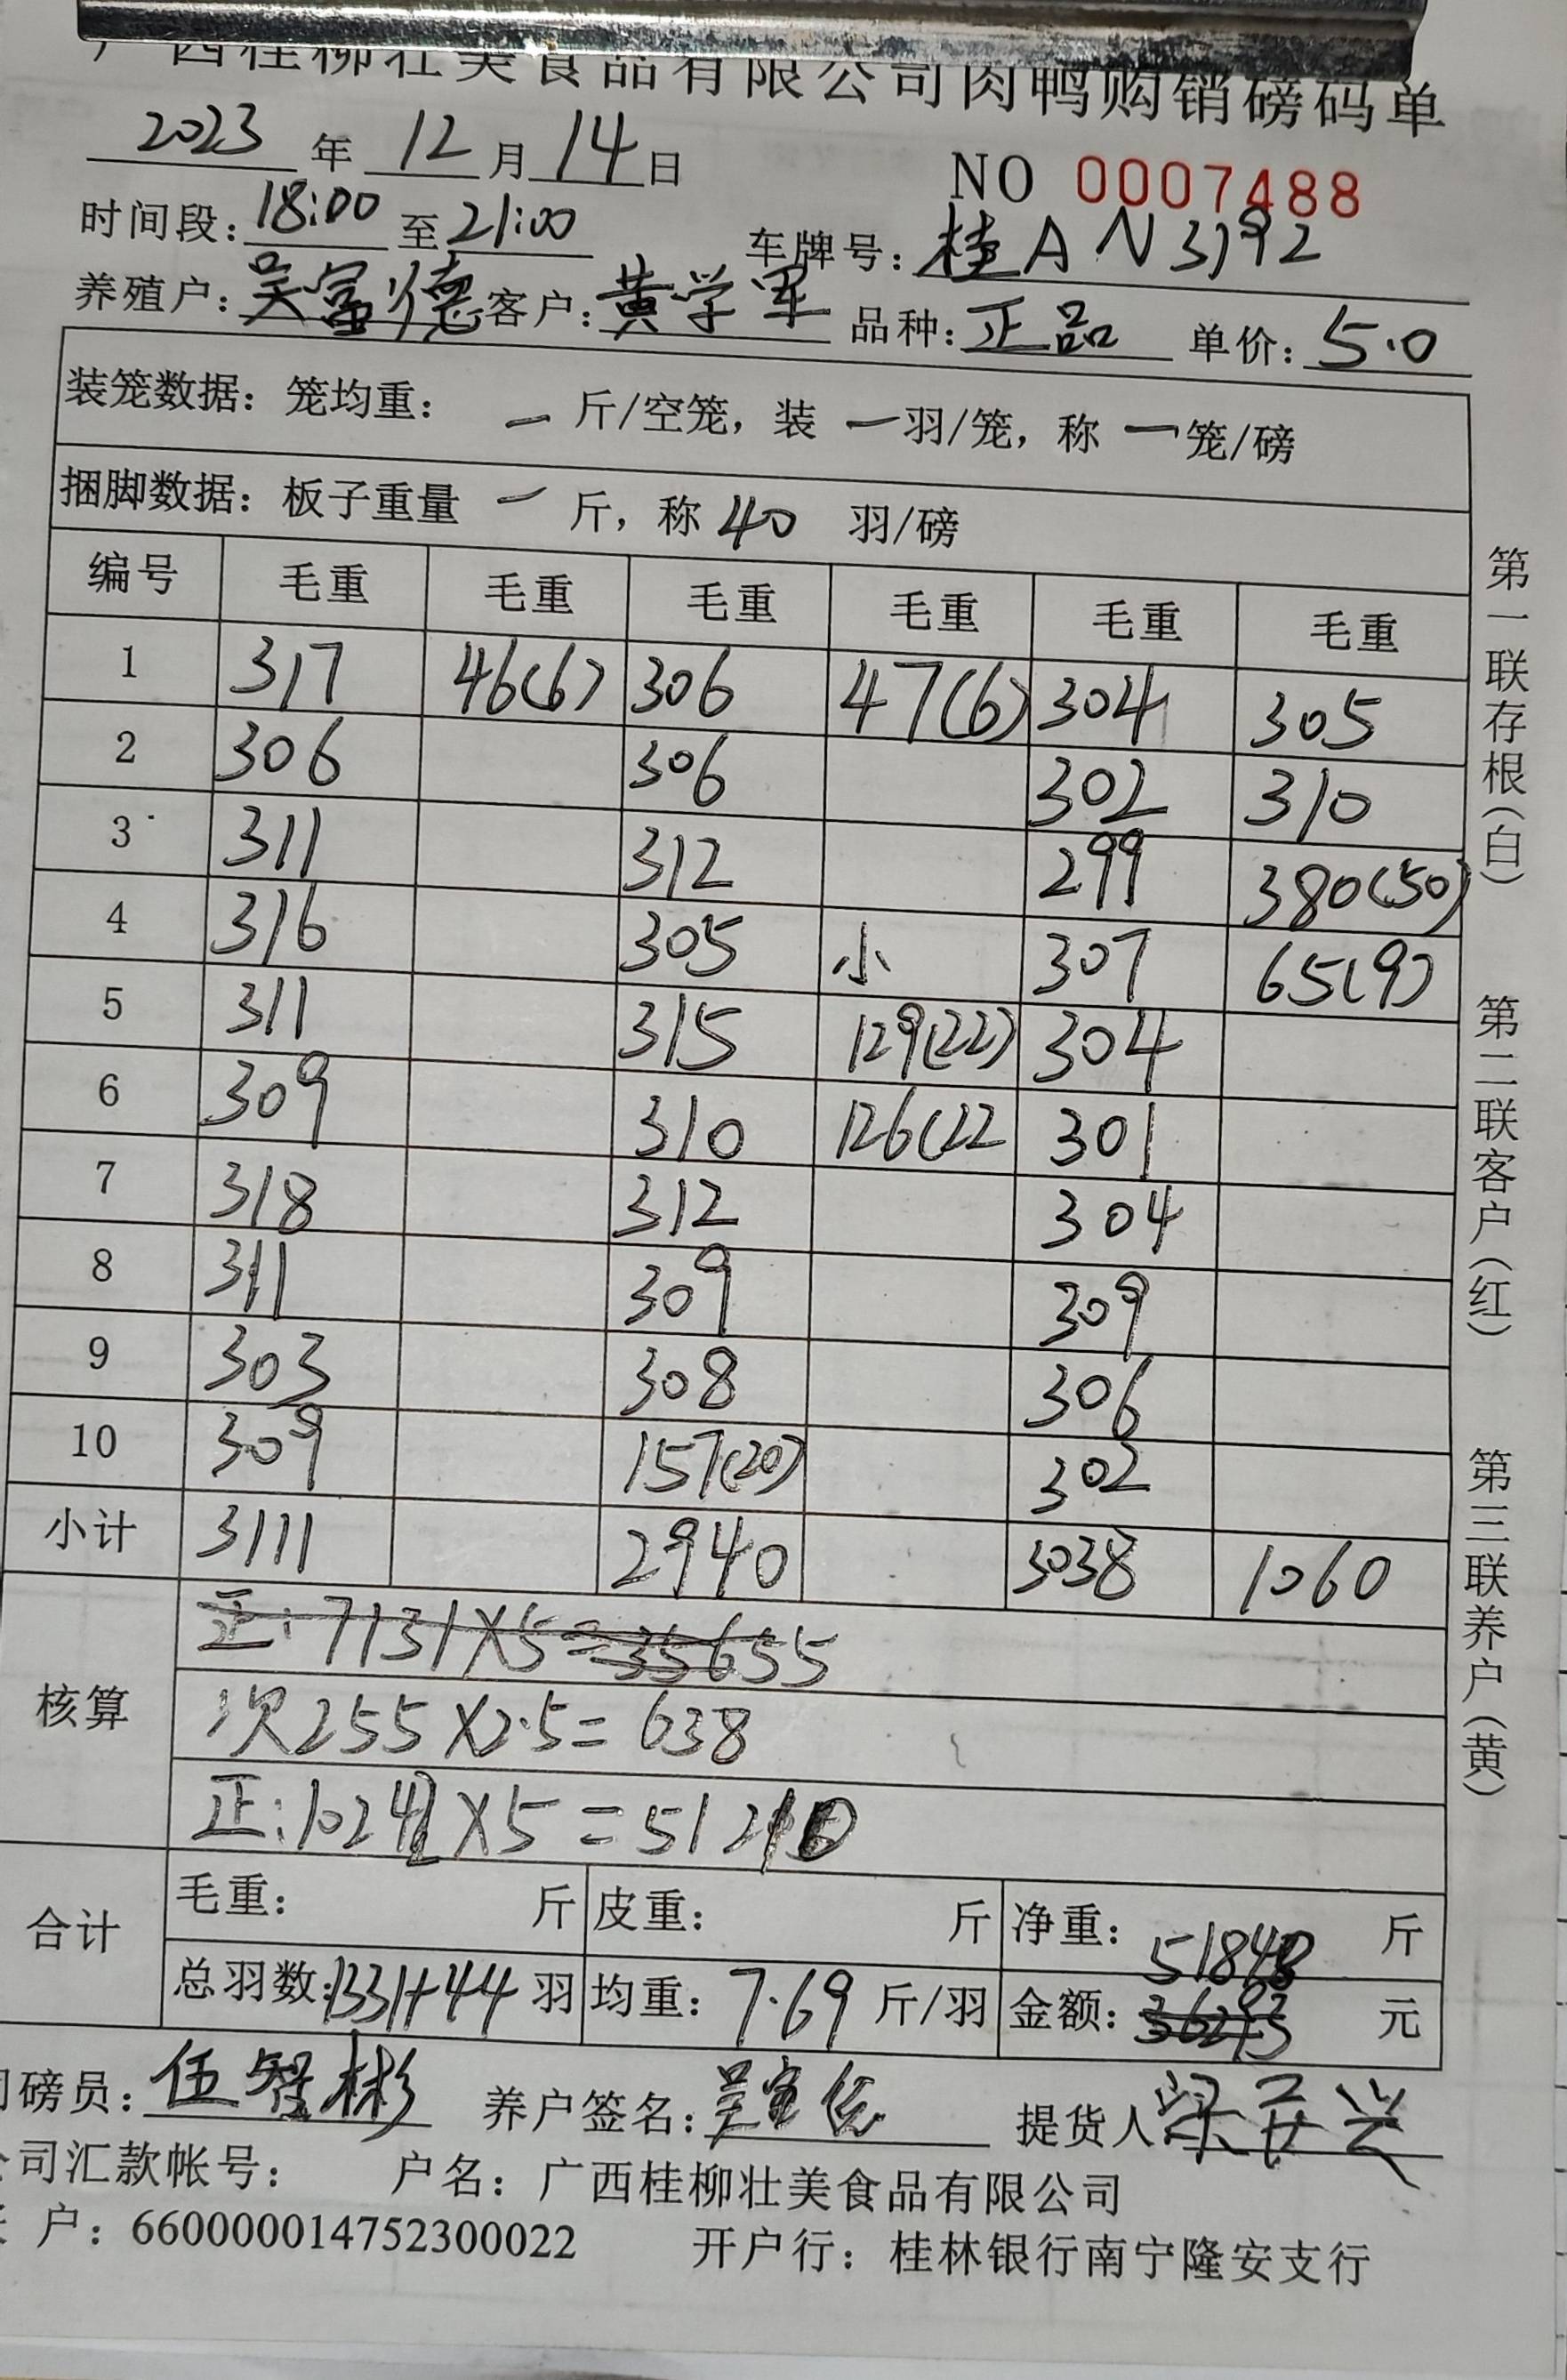 广西桂柳壮美食品有限公司肉鸭购销磅码单
2023 年 12 月 14 日
NO 0007488
时间段: 18:00 至 21:00 车牌号: 桂A N3192
养殖户: 吴富德 客户: 黄学军 品种: 正品 单价: 5.0
装笼数据: 笼均重: 一 斤/空笼, 装 一 羽/笼, 称 一 笼/磅
捆脚数据: 板子重量 一 斤, 称 40 羽/磅
编号 毛重 毛重 毛重 毛重 毛重 毛重
1 317 46(6) 306 47(6) 304 305
2 306 306 302 310
3 311 312 299 380(50)
4 316 305 小 307 65(9)
5 311 315 129(22) 304
6 309 310 126(22 301
7 318 312 304
8 311 309 309
9 303 308 306
10 309 157(20) 302
小计 3111 2940 3038 1060
核算
正: 7131X5=35655
次255X2.5=638
正:10242X5=51210
合计 毛重: 斤 皮重: 斤 净重: 51848 斤
总羽数:1331+44 羽 均重: 7.69 斤/羽 金额: 36293 元
司磅员: 伍智彬 养户签名: 吴富德 提货人
公司汇款帐号: 户名: 广西桂柳壮美食品有限公司
户: 660000014752300022 开户行: 桂林银行南宁隆安支行
第一联存根(白)
第二联客户(红)
第三联养户(黄)